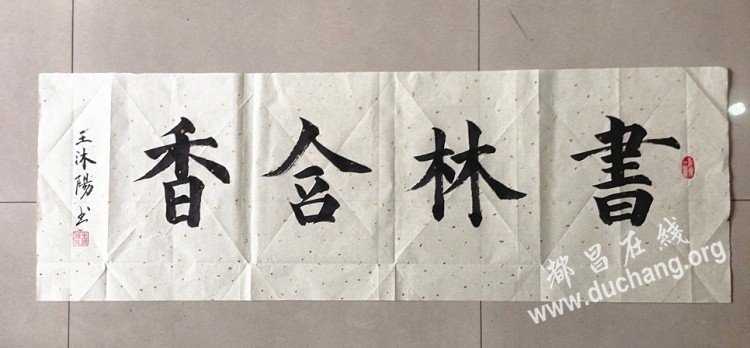 書林含香
王沐陽书
都昌在线
www.duchang.org